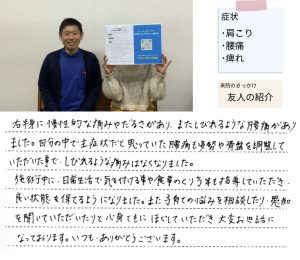 症状
・肩こり
・腰痛
・痺れ
来院のきっかけ
友人の紹介
右半身に慢性的な痛みやだるさがあり、またしびれるような腰痛があり
ました。自分の中で主症状だと思っていた腰痛も姿勢や骨盤を調整して
いただいた事で、しびれるような痛みはなくなりました。
施術中に、日常生活で気を付ける事や食事のとり方等も指導していただき、
良い状態を保てるようになりました。また子育ての悩みを相談したり、愚知
を聞いていただいたりと心身ともにほぐしていただき 大変お世話に
なっております。いつも、ありがとうございます。